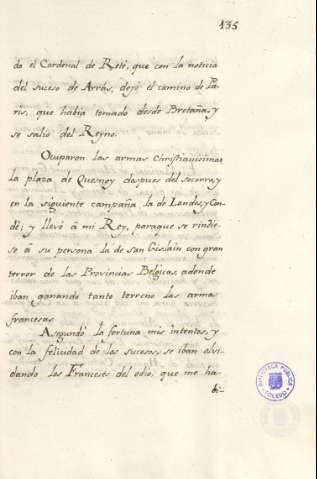 135
do el Cardenal de Retè, que con la noticia
del suceso de Arràs, dejò el camino de Pa-
ris, que habia tomado desde Bretaña, y
se saliò del Reyno.
Ocuparon las armas Christianisimas
la plaza de Quesnoy despues del socorro, y
en la siguiente campaña la de Landes, y Con-
dè; y llevò â mi Rey, paraque se rindie-
se â su persona la de san Gislain con gran
terror de las Provincias Belgicas, adonde
iban ganando tanto terreno las armas
francesas.
Asegundò la fortuna mis intentos, y
con la felicidad de los sucesos, se iban olvi-
dando los Franceses del odio, que me ha-
bi-
BIBLIOTECA PUBLICA
TOLEDO